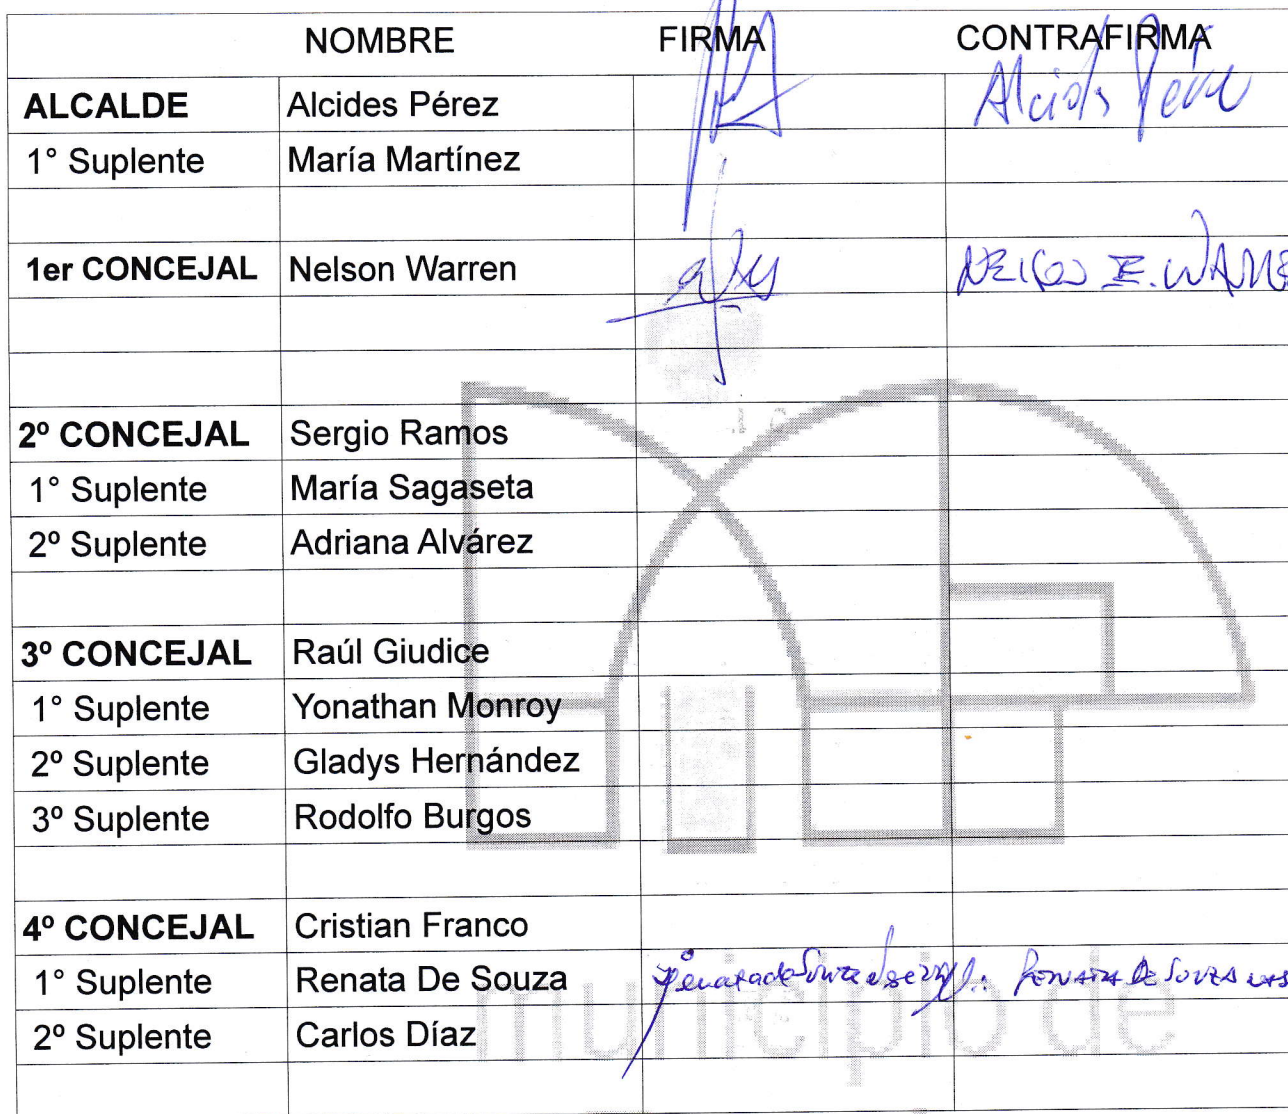 NOMBRE FIRMA CONTRAFIRMA
ALCALDE Alcides Pérez Alcids Pérez
1° Suplente María Martínez
1er CONCEJAL Nelson Warren E.
2º CONCEJAL Sergio Ramos
1° Suplente María Sagaseta
2º Suplente Adriana Alvárez
3º CONCEJAL Raúl Giudice
1° Suplente Yonathan Monroy
2º Suplente Gladys Hernández
3º Suplente Rodolfo Burgos
4º CONCEJAL Cristian Franco
1° Suplente Renata De Souza RENATA DE SOUZA
2º Suplente Carlos Díaz
municipio de